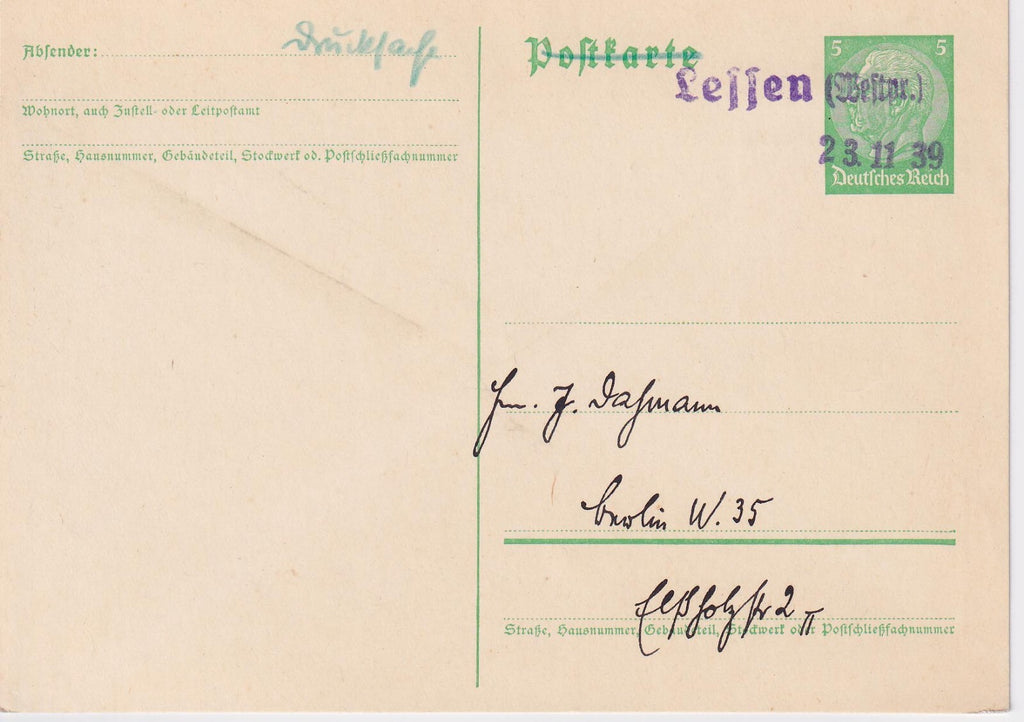 Absender:
Drucksache
Wohnort, auch Zustell- oder Leitpostamt
Straße, Hausnummer, Gebäudeteil, Stockwerk od. Postschließfachnummer
Postkarte
5 5
Lessen (Westpr.)
23.11 39
Deutsches Reich
Hrn. J. Dahmann
Berlin W. 35
Elßholzstr 2 II
Straße, Hausnummer, Gebäudeteil, Stockwerk oder Postschließfachnummer